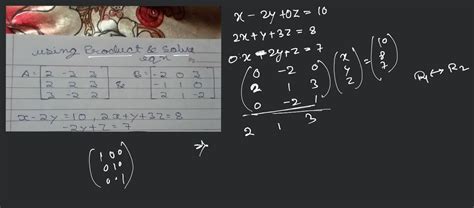 using Product & Solve
eqn
A = [2 -2 2
2 2 2
3 -2 2] & B = [-2 0 2
-1 1 0
2 1 -2]
x - 2y = 10, 2x + y + 3z = 8
-2y + z = 7
x - 2y + 0z = 10
2x + y + 3z = 8
0·x - 2y + z = 7
(0 -2 0
2 1 3
0 -2 1) (x
y
z) = (10
8
7)
R1 ↔ R2
2 1 3
(1 0 0
0 1 0
0 0 1)
⇒